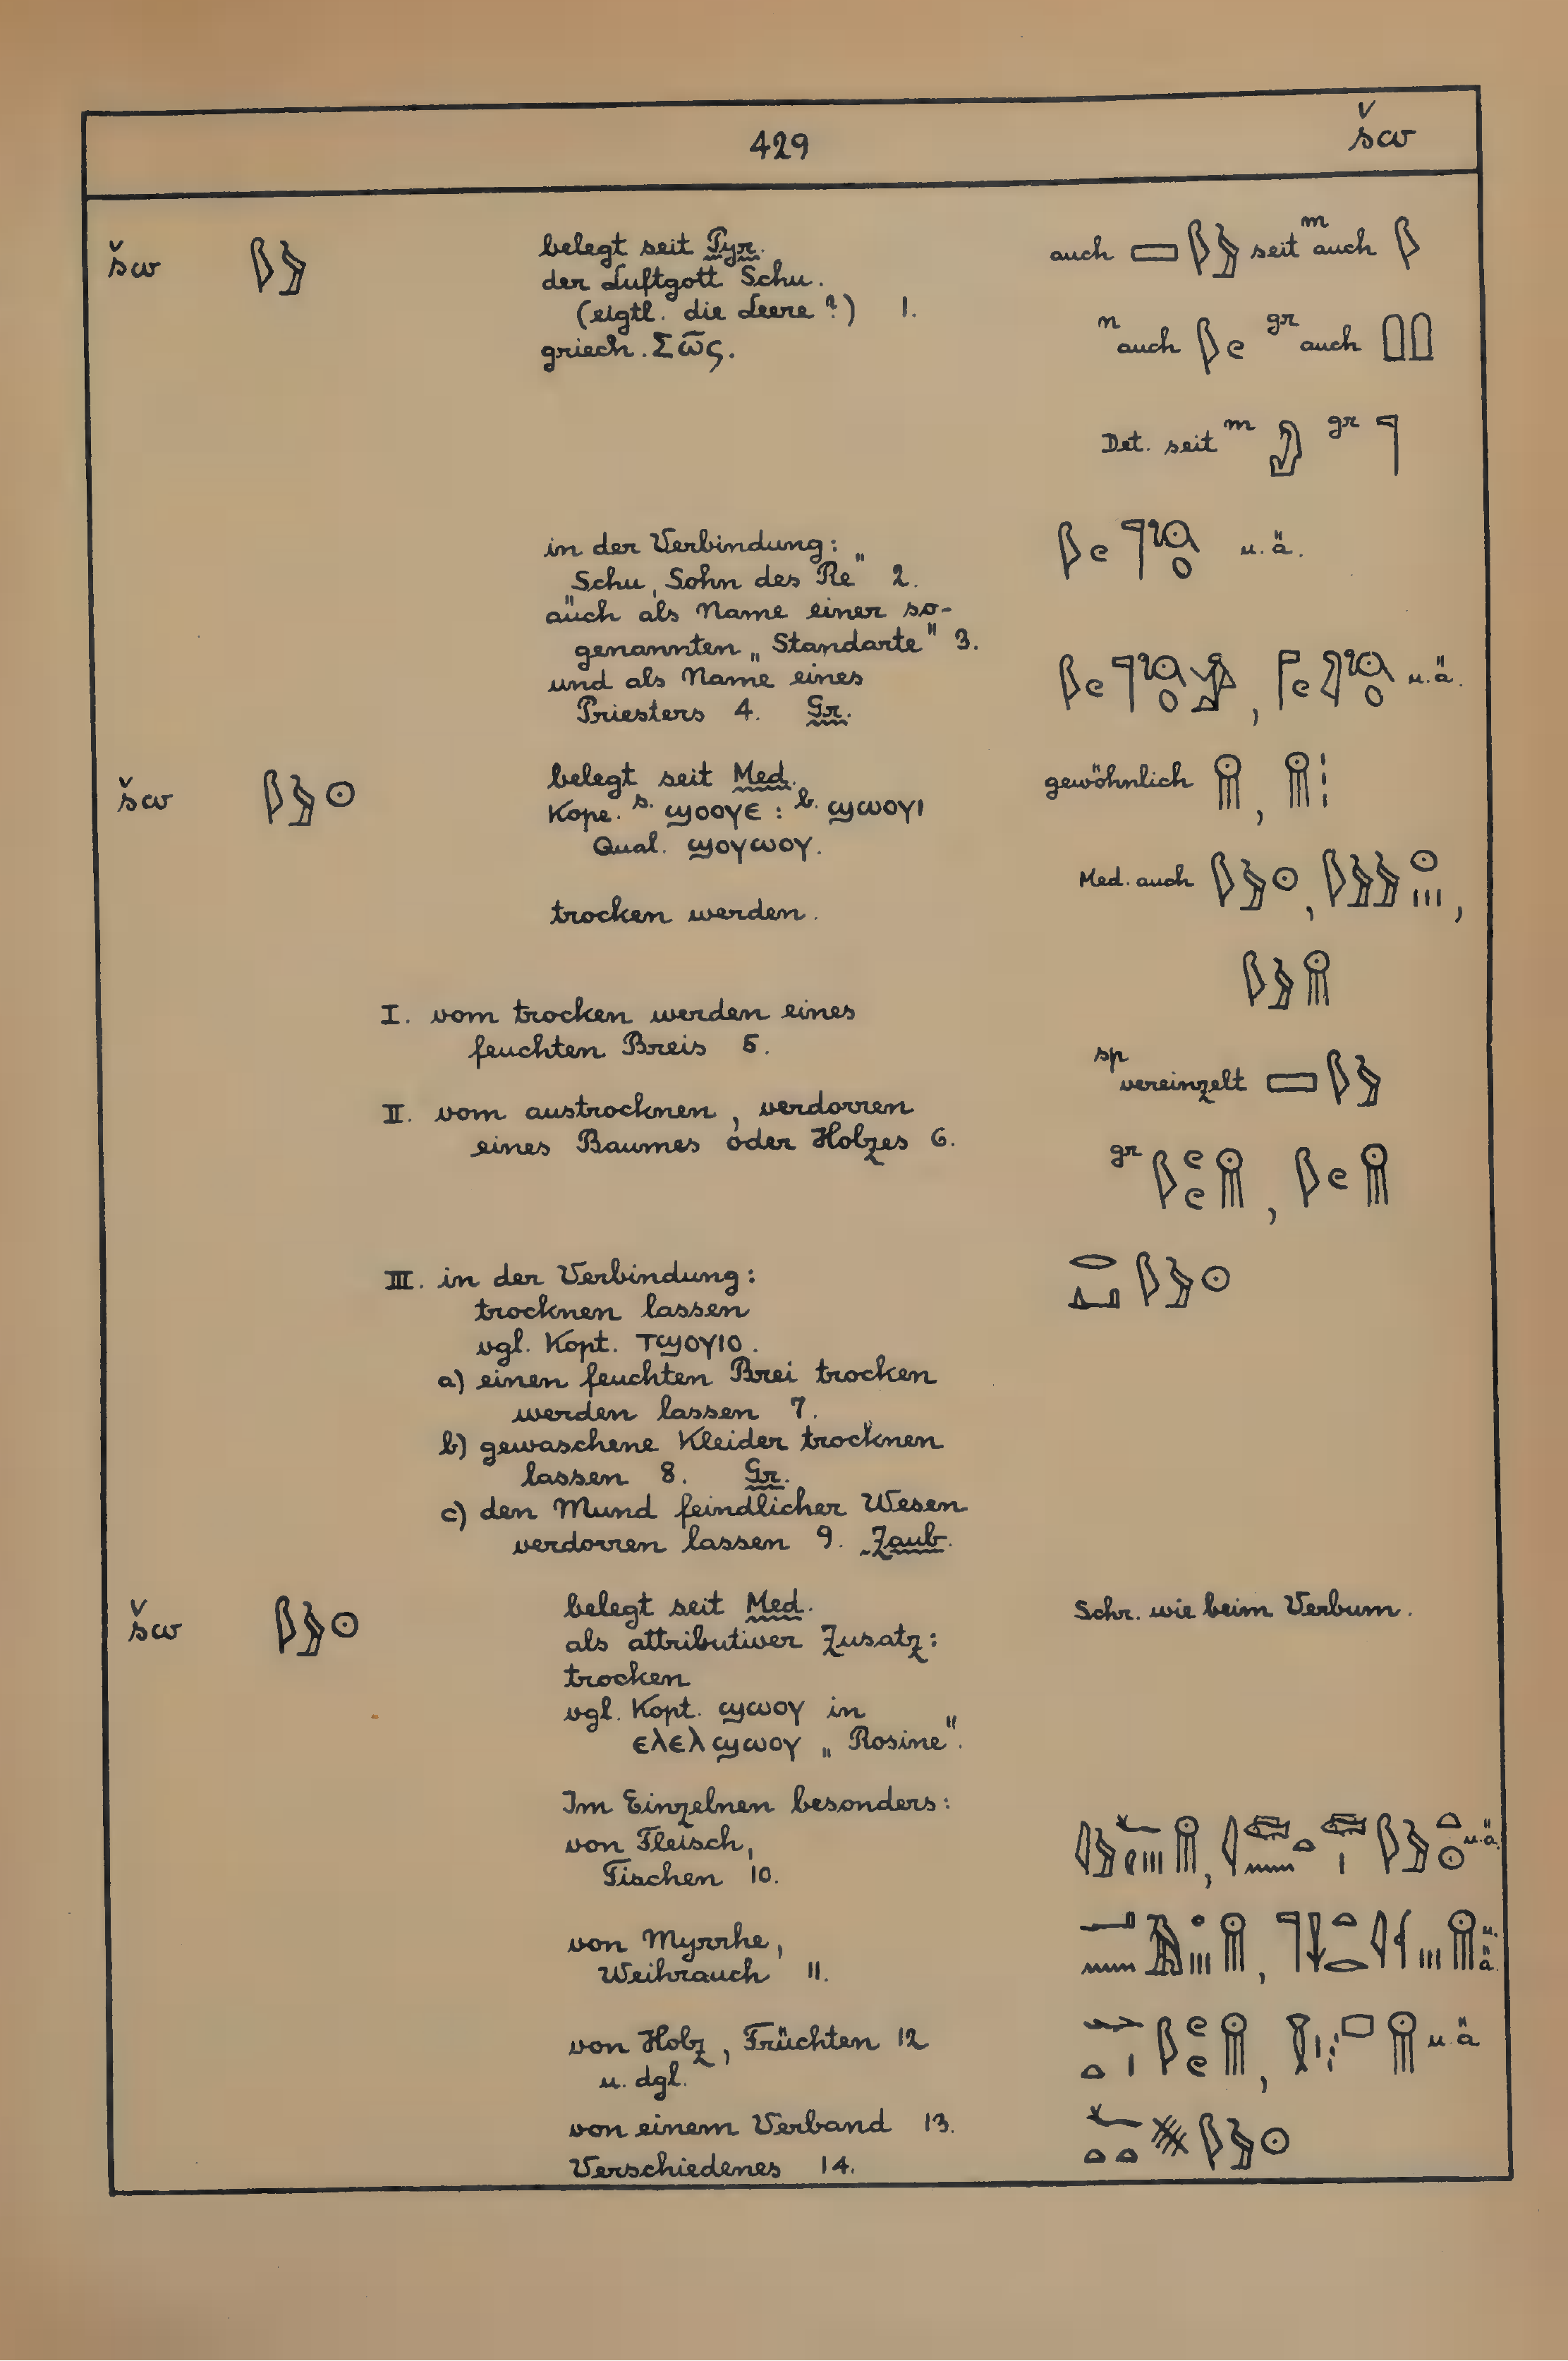 429
šw
šw 𓆄𓅱
belegt seit Pyr.
der Luftgott Schu.
(eigtl. die Leere?) 1.
griech. Σῶς.
auch 𓈙𓆄𓅱 seit m auch 𓆄
n auch 𓆄𓏲 gr auch
Det. seit m gr 𓊹
in der Verbindung:
„Schu, Sohn des Re" 2.
auch als Name einer so-
genannten „Standarte" 3.
und als Name eines
Priesters 4. Gr.
u.ä.
u.ä.
šw 𓆄𓅱𓇳
belegt seit Med.
Kopt. s. ϣⲟⲟⲩⲉ : b. ϣⲱⲟⲩⲓ
Qual. ϣⲟⲩⲱⲟⲩ.
trocken werden.
gewöhnlich 𓇶, 𓇶
Med. auch 𓆄𓅱𓇳, 𓆄𓅱𓅱𓇳𓏥,
𓆄𓅱𓇶
sp vereinzelt 𓈙𓆄𓅱
gr 𓆄𓏲𓏲𓇶, 𓆄𓏲𓇶
I. vom trocken werden eines
feuchten Breis 5.
II. vom austrocknen, verdorren
eines Baumes oder Holzes 6.
III. in der Verbindung:
trocknen lassen
vgl. Kopt. ⲧϣⲟⲩⲓⲟ.
𓂋𓂞𓆄𓅱𓇳
a) einen feuchten Brei trocken
werden lassen 7.
b) gewaschene Kleider trocknen
lassen 8. Gr.
c) den Mund feindlicher Wesen
verdorren lassen 9. Zaub.
šw 𓆄𓅱𓇳
belegt seit Med.
als attributiver Zusatz:
trocken
vgl. Kopt. ϣⲱⲟⲩ in
ⲉⲗⲉⲗϣⲱⲟⲩ „Rosine".
Schr. wie beim Verbum.
Im Einzelnen besonders:
von Fleisch,
Fischen 10.
u.ä.
von Myrrhe,
Weihrauch 11.
u.ä.
von Holz, Früchten 12
u. dgl.
u.ä
von einem Verband 13.
Verschiedenes 14.